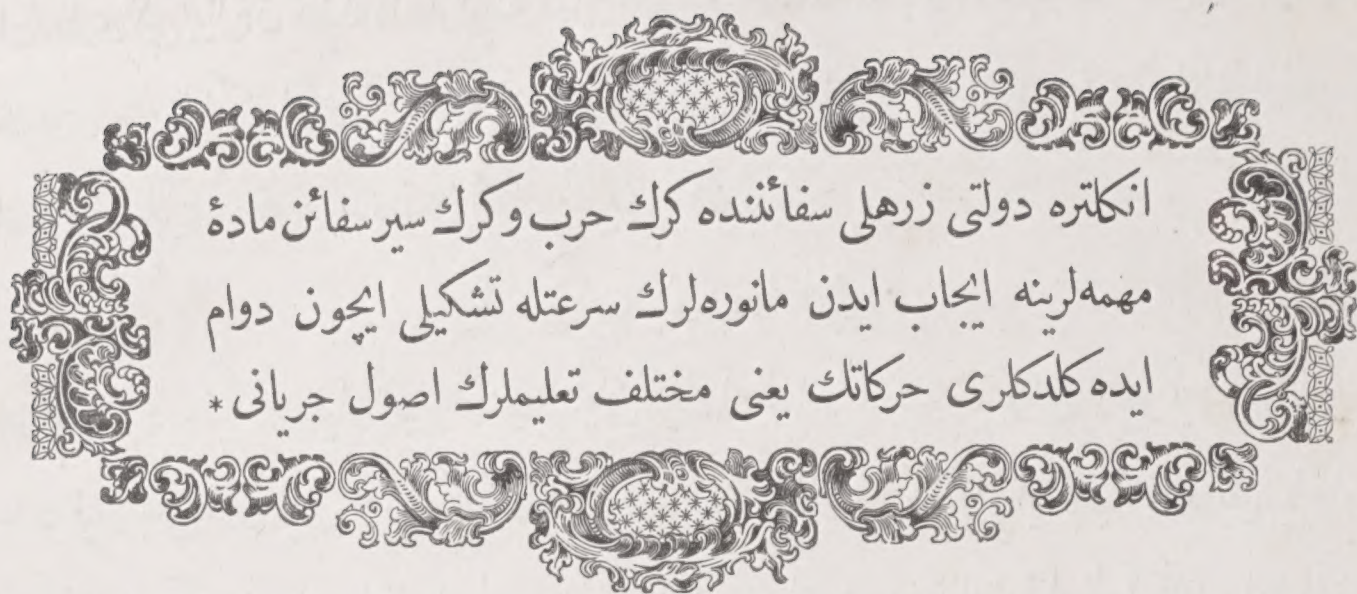 انكلتره دولتی زرهلی سفائننده كرك حرب وكرك سیر سفائن مادهٔ
مهمه‌لرینه ایجاب ایدن مانوره‌لرك سرعتله تشكیلی ایچون دوام
ایده كلدكلری حركاتك یعنی مختلف تعلیملرك اصول جریانی *